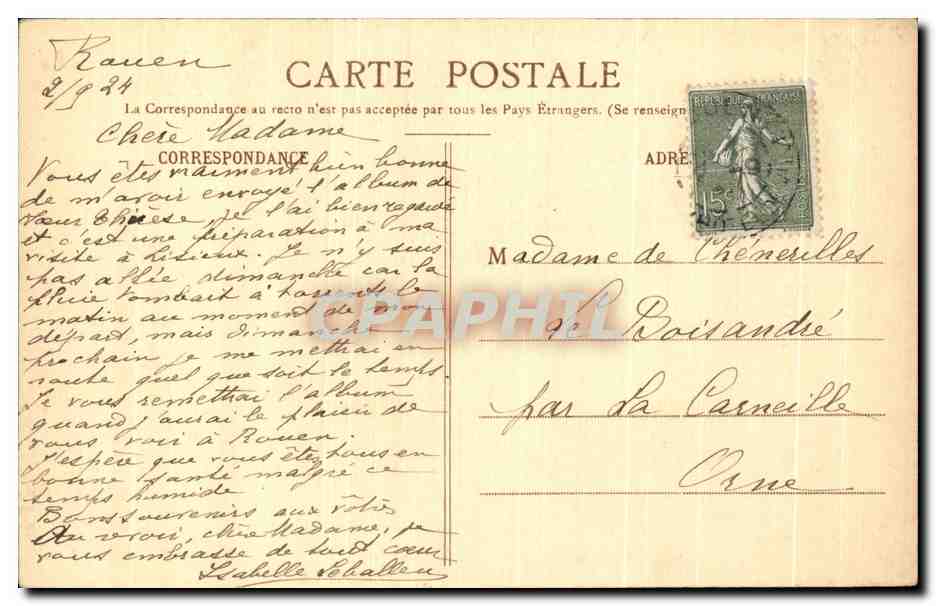 Rouen
2/9 24
CARTE POSTALE
La Correspondance au recto n'est pas acceptée par tous les Pays Étrangers. (Se renseign
Chère Madame
CORRESPONDANCE
Vous êtes vraiment bien bonne
de m'avoir envoyé l'album de
Sœur Thérèse, je l'ai bien regardé
et c'est une préparation à ma
visite à Lisieux. Je n'y suis
pas allée dimanche car la
pluie tombait à torrents le
matin au moment de mon
départ, mais dimanche
prochain je me mettrai en
route quel que soit le temps
Je vous remettrai l'album
quand j'aurai le plaisir de
vous voir à Rouen.
J'espère que vous êtes tous en
bonne santé malgré ce
temps humide
Bons souvenirs aux vôtres
Au revoir, chère Madame, je
vous embrasse de tout cœur
Isabelle
ADRE
REPUBLIQUE FRANÇAISE
15c
POSTES
Madame de Chênerilles
de Boisandré
par La Carneille
Orne
CPAPHIL